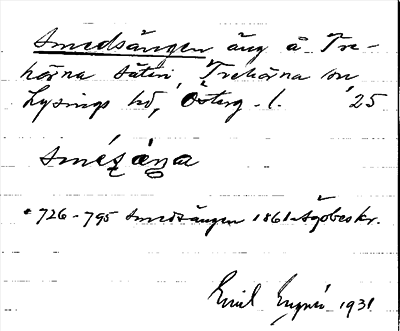 Smedsängen äng å Tre-
hörna säteri, Trehörna sn
Lysings hd, Österg. l. '25
smézæŋa
* 726-795 Smedsängen 1861 Ägobeskr.
Emil 1931